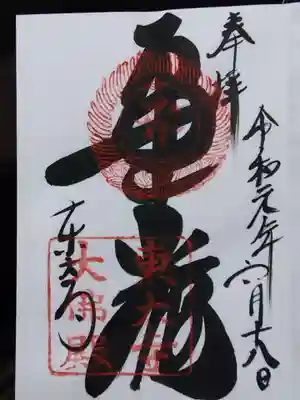 奉拝
令和元年六月十八日
華厳
東大寺
東大寺
大佛殿